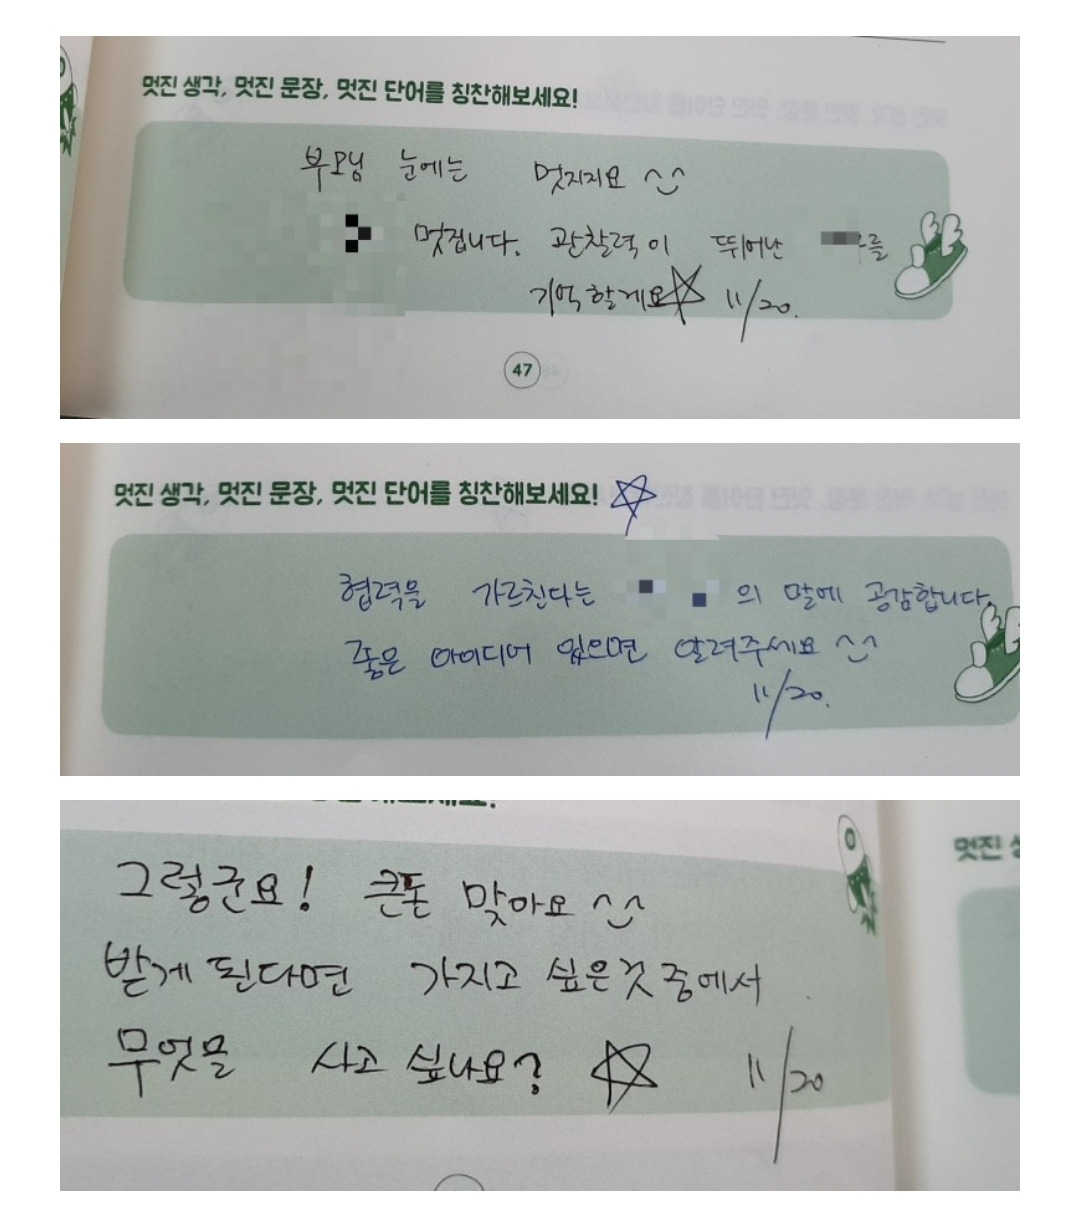 멋진 생각, 멋진 문장, 멋진 단어를 칭찬해보세요!
부모님 눈에는 멋지지요 ^^
멋집니다. 관찰력이 뛰어난 를
기억할게요☆ 11/20.
47
멋진 생각, 멋진 문장, 멋진 단어를 칭찬해보세요! ☆
협력을 가르친다는 의 말에 공감합니다.
좋은 아이디어 있으면 알려주세요 ^^
11/20.
그렇군요! 큰돈 맞아요 ^^
멋진
받게 된다면 가지고 싶은것 중에서
무엇을 사고 싶나요? ☆ 11/20